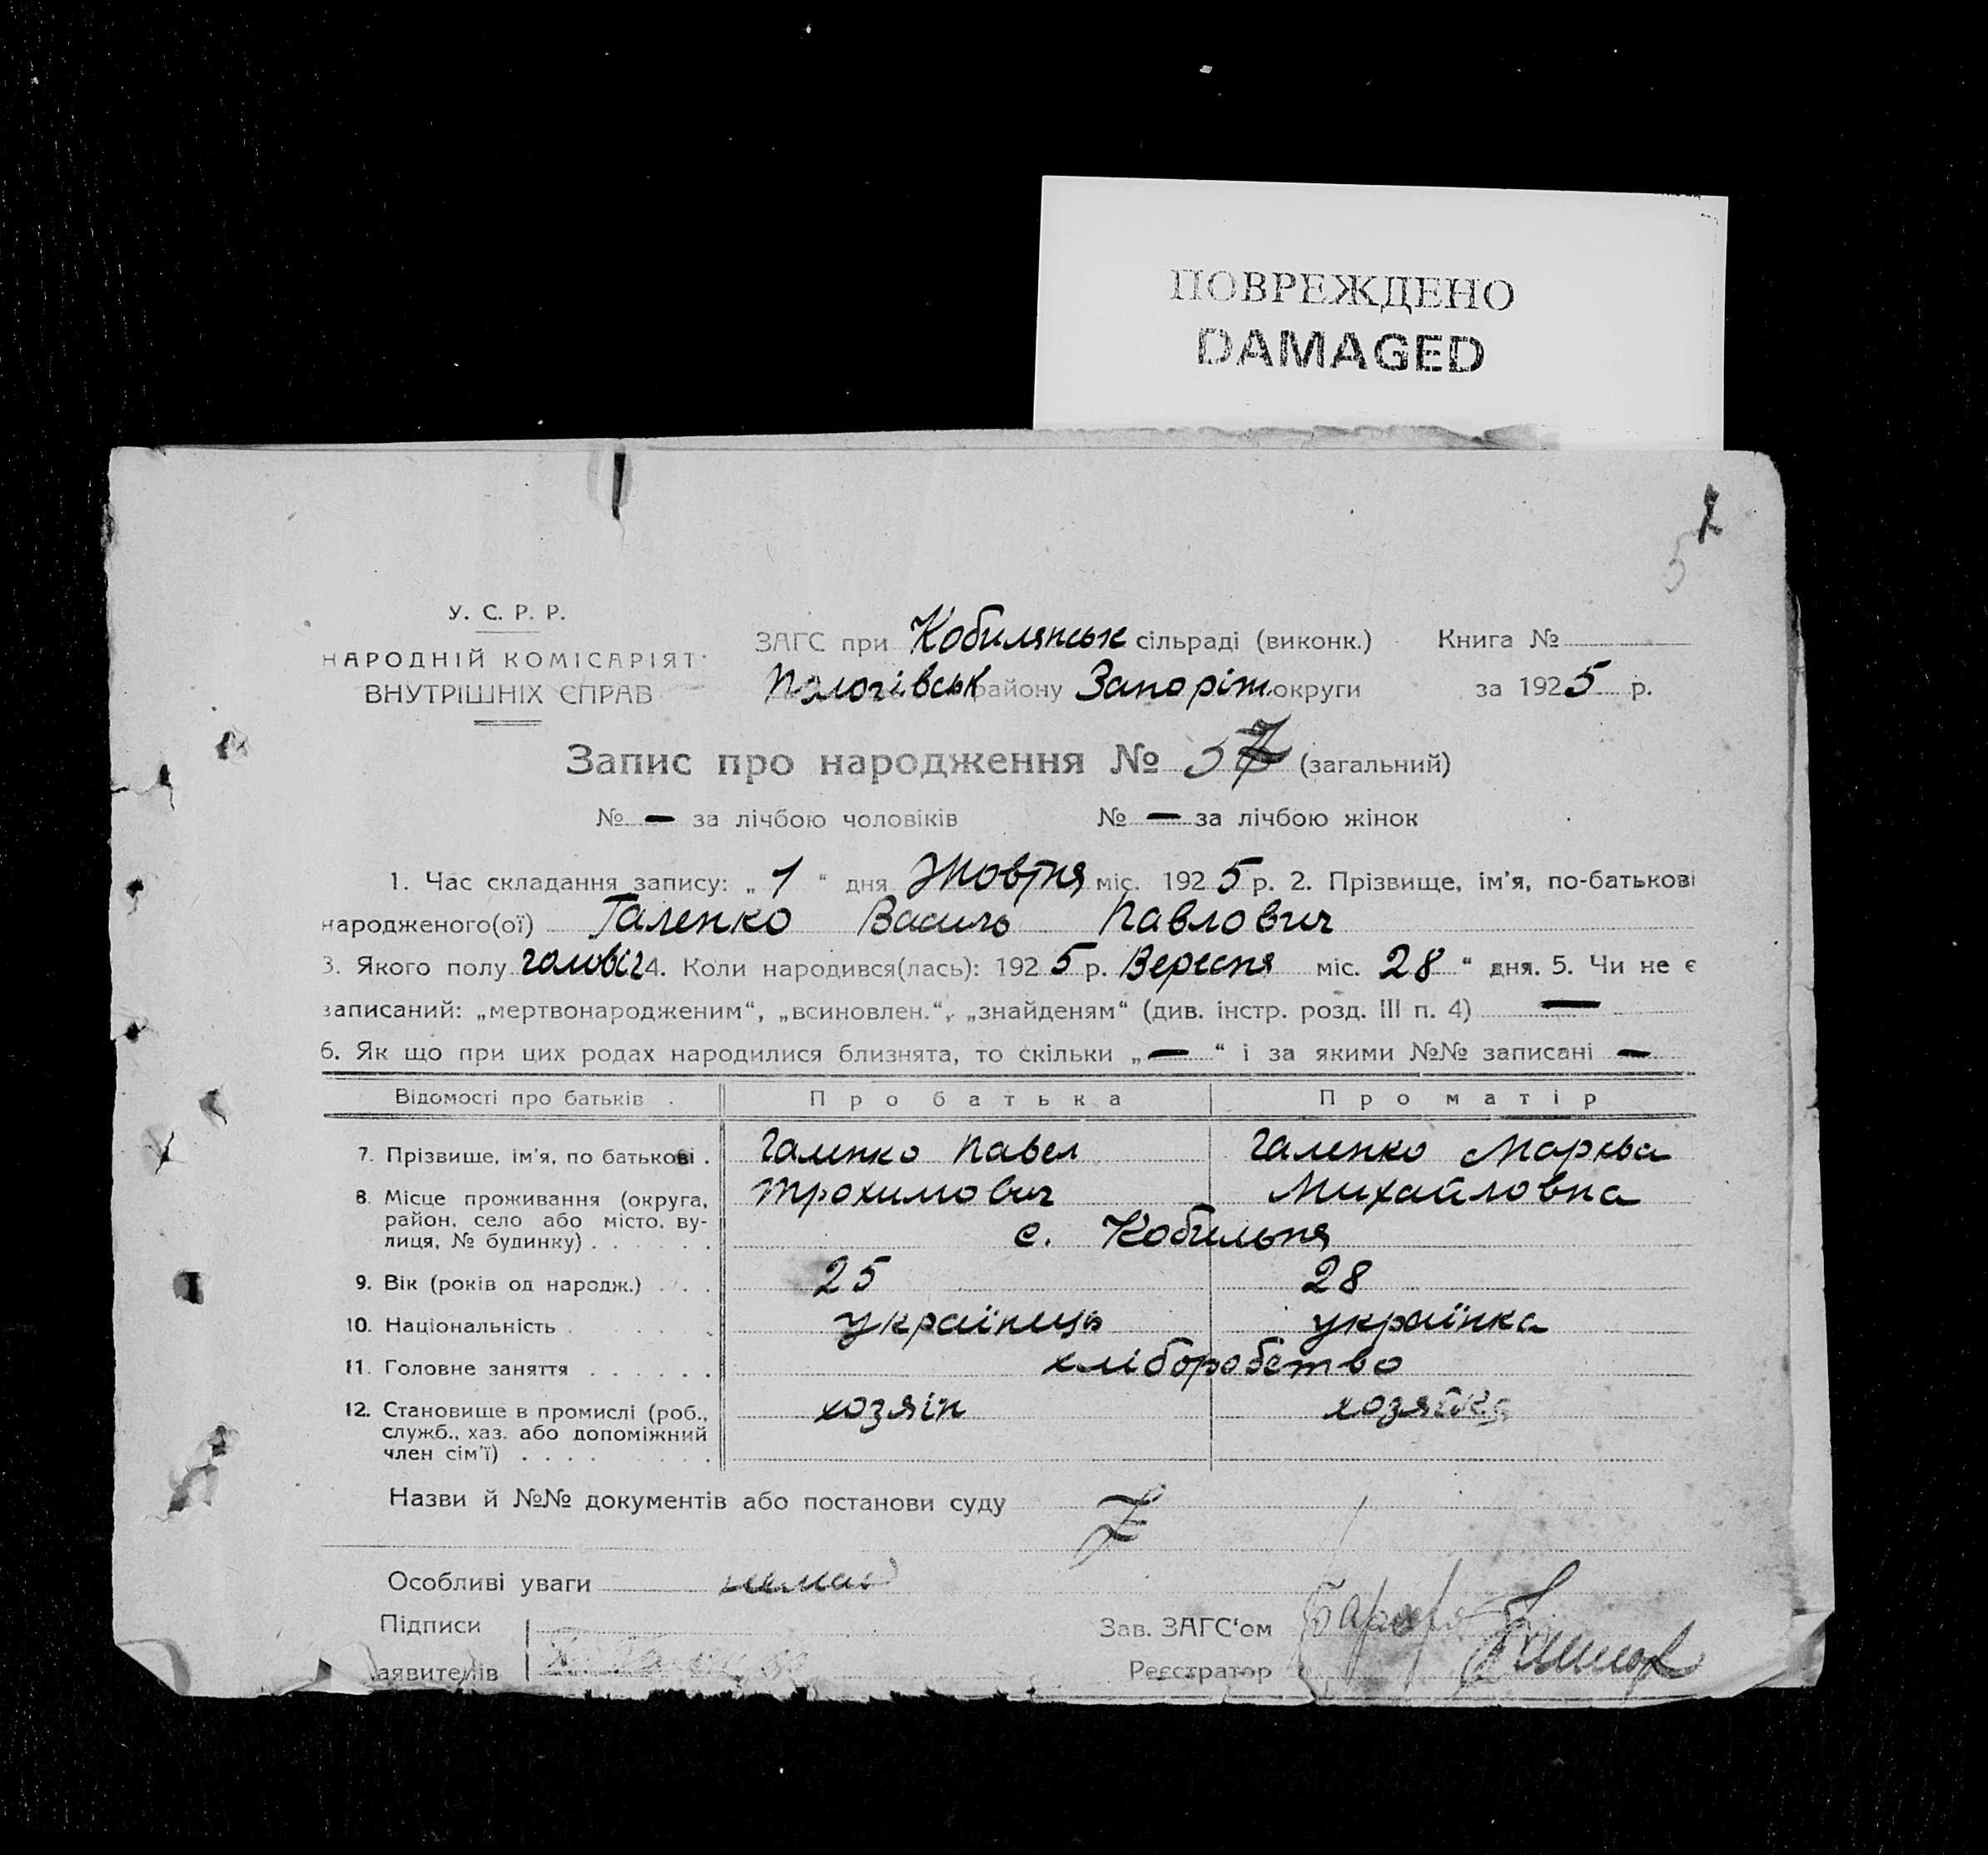 ПОВРЕЖДЕНО
DAMAGED
У. С. Р. Р.
НАРОДНІЙ КОМІСАРІЯТ
ВНУТРІШНІХ СПРАВ
ЗАГС при Кобилянськ сільраді (виконк.) Книга №
Пологівськ району Запоріж. округи за 1925 р.
Запис про народження № (загальний)
№ — за лічбою чоловіків № — за лічбою жінок
1. Час складання запису: „ 1 “ дня Жовтня міс. 1925 р. 2. Прізвище, ім'я, по-батькові
народженого(ої) Галенко Василь Павлович
3. Якого полу чоловіч 4. Коли народився(лась): 1925 р. Вересня міс. 28 “ дня. 5. Чи не є
записаний: „мертвонародженим“, „всиновлен.“, „знайденям“ (див. інстр. розд. III п. 4) —
6. Як що при цих родах народилися близнята, то скільки „ — “ і за якими №№ записані —
Відомості про батьків Про батька Про матір
7. Прізвише, ім'я, по батькові . Галенко Павел Галенко Марєва
Трохимович Михайловна
8. Місце проживання (округа,
район, село або місто, ву-
лиця, № будинку) . . . . . . с. Кобильня
9. Вік (років од народж.) . . . 25 28
10. Національність . . . . . українець українка
11. Головне заняття . . . . . . хліборобство
12. Становище в промислі (роб.,
служб., хаз. або допоміжний
член сім'ї) . . . . . . . . хозяін хозяйка
Назви й №№ документів або постанови суду
Особливі уваги немає
Підписи
аявителів
Зав. ЗАГС'ом
Реєстратор